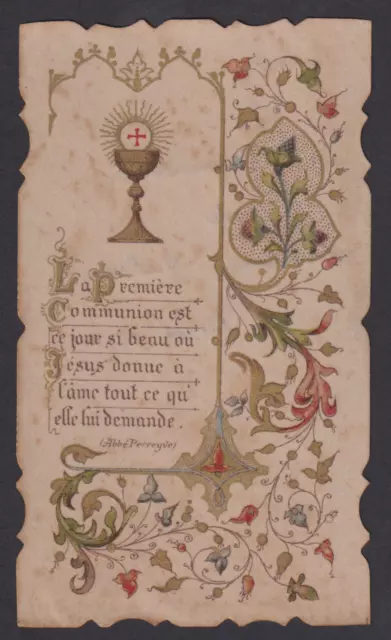 La Première
Communion est
ce jour si beau où
Jésus donne à
l'âme tout ce qu'
elle lui demande.
(Abbé Perreyve)